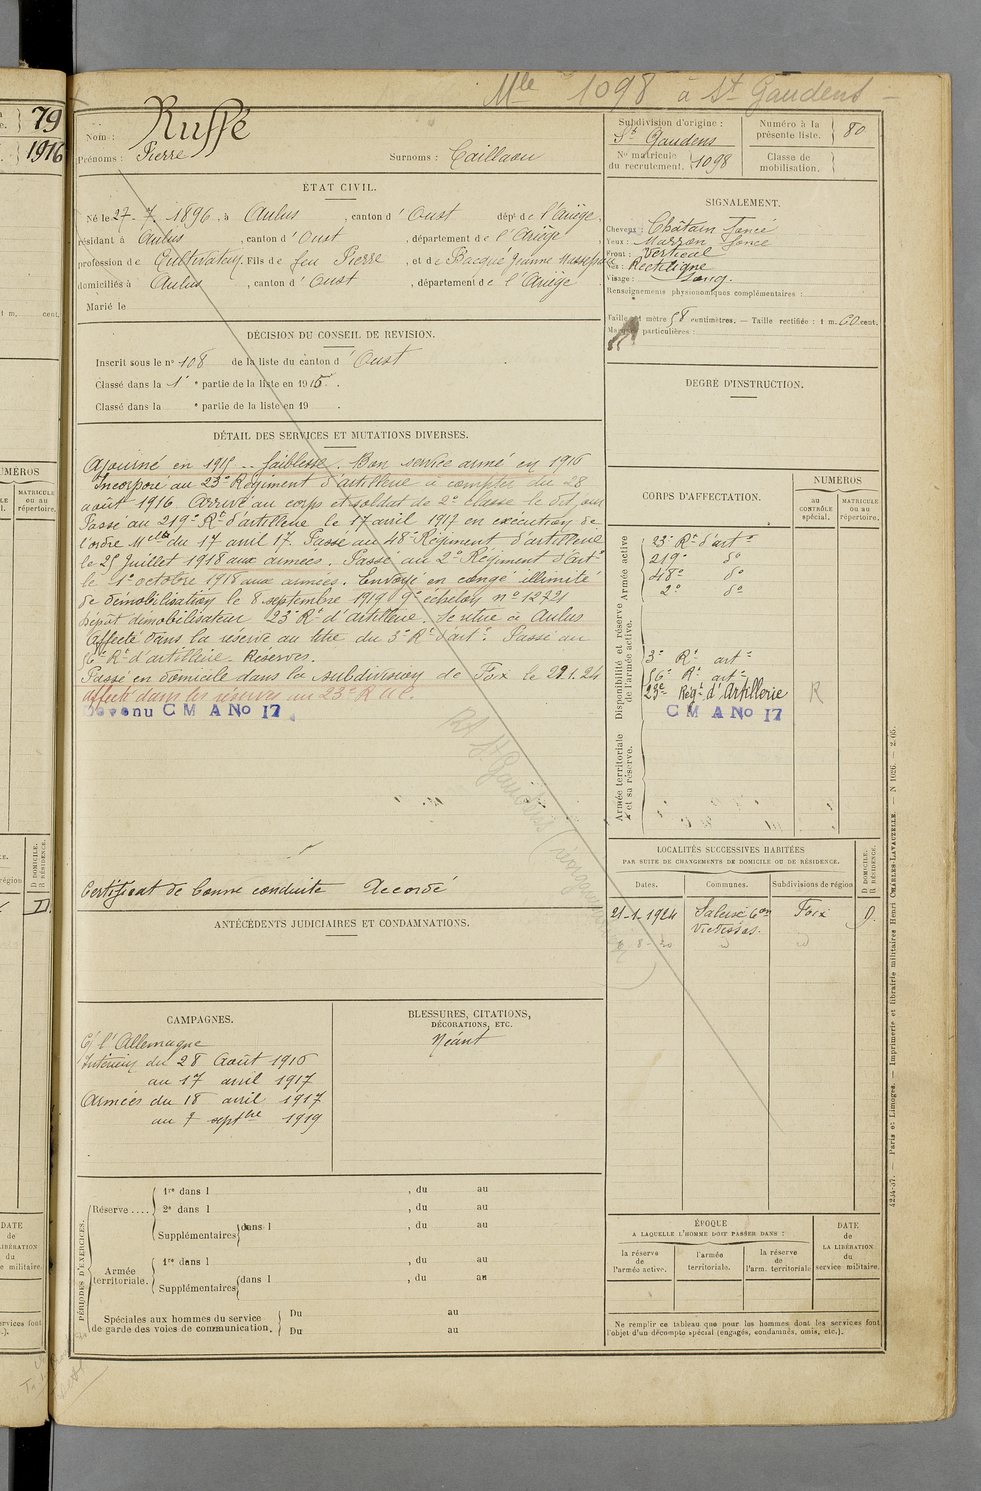 Mle 1098 à St Gaudens
79
1916
Nom : Ruffé
Prénoms : Pierre Surnoms : Caillaou
Subdivision d'origine :
St Gaudens
No matricule
du recrutement. 1098
Numéro à la
présente liste. 80
Classe de
mobilisation.
ÉTAT CIVIL.
Né le 27 - 7 - 1896, à Aulus, canton d' Oust dépt de l'Ariège,
résidant à Aulus, canton d' Oust, département de l'Ariège,
profession de Cultivateur, Fils de feu Pierre, et de Bacqué Jeanne
domiciliés à Aulus, canton d' Oust, département de l'Ariège
Marié le
SIGNALEMENT.
Cheveux : Châtain foncé
Yeux : Marron foncé
Front : Vertical
Nez : Rectiligne
Visage : Long.
Renseignements physionomiques complémentaires :
Taille : 1 mètre 58 centimètres. — Taille rectifiée : 1 m. 60 cent.
Marques particulières :
DÉCISION DU CONSEIL DE REVISION.
Inscrit sous le no 108 de la liste du canton d' Oust
Classé dans la 1e partie de la liste en 1916.
Classé dans la e partie de la liste en 19 .
DEGRÉ D'INSTRUCTION.
DÉTAIL DES SERVICES ET MUTATIONS DIVERSES.
Ajourné en 1915 .. faiblesse. Bon service armé en 1916
Incorporé au 23e Régiment d'artillerie à compter du 28
août 1916 Arrivé au corps et soldat de 2e classe le dit jour
Passé au 219e Rt d'artillerie le 17 avril 1917 en exécution de
l'ordre Mel du 17 avril 17. Passé au 48e Régiment d'artillerie
le 25 Juillet 1918 aux armées. Passé au 2e Régiment d'arte
le 1er octobre 1918 aux armées. Envoyé en congé illimité
de démobilisation le 8 septembre 1919 9e échelon no 12721
Dépôt démobilisateur 23e Rt d'Artillerie. Se retire à Aulus
Affecté dans la réserve au titre du 3e Rt d'art. Passé au
56e Rt d'artillerie. Réserves.
Passé en domicile dans la subdivision de Foix le 21.1.24
affecté dans les réserves au 23e R A C.
Devenu C M A No 17
Rt St Gaudens
Certificat de bonne conduite Accordé
CORPS D'AFFECTATION.
NUMÉROS
au
CONTRÔLE
spécial.
MATRICULE
ou au
répertoire.
Disponibilité et réserve
de l'armée active.
Armée active
23e Rt d'arte
219e do
48e do
2e do
3e Rt arte
56e Rt arte
23e Régt d'Artillerie R
C M A No 17
Armée territoriale
et sa réserve.
LOCALITÉS SUCCESSIVES HABITÉES
PAR SUITE DE CHANGEMENTS DE DOMICILE OU DE RÉSIDENCE.
D DOMICILE.
R RÉSIDENCE.
Dates. Communes. Subdivisions de région
21-1-1924 Con Foix D.
Vicdessos.
ANTÉCÉDENTS JUDICIAIRES ET CONDAMNATIONS.
CAMPAGNES.
C/ l'Allemagne
Intérieur du 28 Août 1916
au 17 avril 1917
Armées du 18 avril 1917
au 7 septbre 1919
BLESSURES, CITATIONS,
DÉCORATIONS, ETC.
Néant
PÉRIODES D'EXERCICES.
Réserve ....
1re dans l , du au
2e dans l , du au
Supplémentaires dans l , du au
Armée
territoriale.
1re dans l , du au
Supplémentaires dans l , du au
Spéciales aux hommes du service
de garde des voies de communication.
Du au
Du au
ÉPOQUE
A LAQUELLE L'HOMME DOIT PASSER DANS :
la réserve
de
l'armée active.
l'armée
territoriale.
la réserve
de
l'arm. territoriale
DATE
de
LA LIBÉRATION
du
service militaire.
Ne remplir ce tableau que pour les hommes dont les services font
l'objet d'un décompte spécial (engagés, condamnés, omis, etc.).
Paris et Limoges. — Imprimerie et librairie militaires Henri CHARLES-LAVAUZELLE.